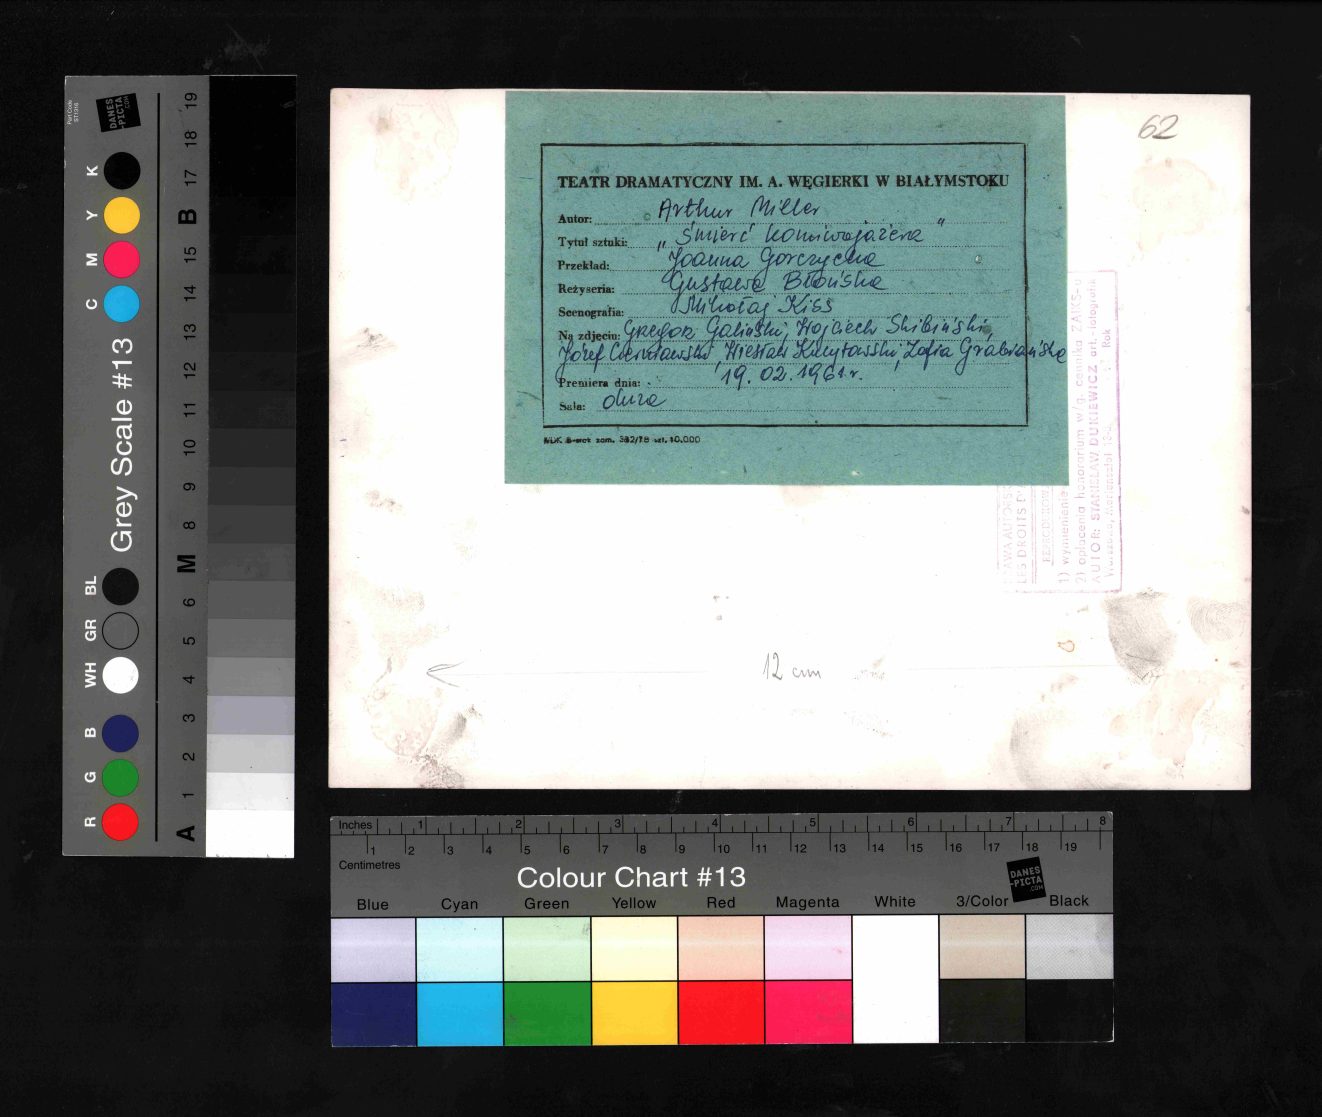 62
TEATR DRAMATYCZNY IM. A. WĘGIERKI W BIAŁYMSTOKU
Autor: Arthur Miller
Tytuł sztuki: „Śmierć komiwojażera"
Przekład: Joanna Gorczycka
Reżyseria: Gustawa Błońska
Scenografia: Mikołaj Kiss
Na zdjęciu: Grzegorz Galiński, Wojciech Skibiński,
Józef Czerniawski, Wiesław Kucytowski, Zofia Grabiańska
Premiera dnia: 19.02.1961 r.
Sala: duża
zam. 332/78 szt. 10.000
LES DROITS D'
1) wymienienie
2) opłacenia honorarium w/g. cennika ZAIKS-u
AUTOR: STANISŁAW DUKIEWICZ art.-fotografik
Rok
12 cm
Part Code
ST1316
DANES
-PICTA
.COM
Grey Scale #13
K
Y
M
C
BL
GR
WH
B
G
R
19
18
17
B
15
14
13
12
11
10
9
8
M
6
5
4
3
2
1
A
Inches 1 2 3 4 5 6 7 8
1 2 3 4 5 6 7 8 9 10 11 12 13 14 15 16 17 18 19
Centimetres
Colour Chart #13
DANES
-PICTA
.COM
Blue Cyan Green Yellow Red Magenta White 3/Color Black